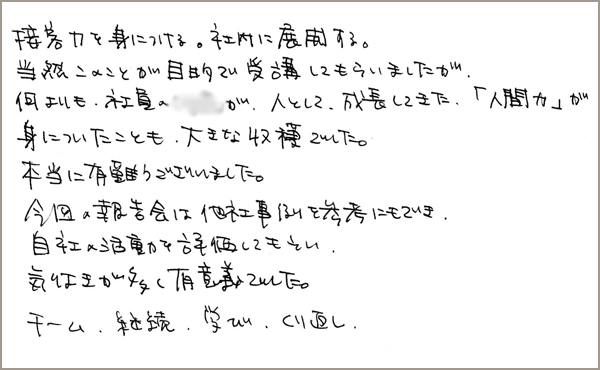 接客力を身につける。社内に展開する。
当然このことが目的で受講してもらいましたが、
何よりも、社員の が、人として、成長してきた、「人間力」が
身についたことも、大きな収穫でした。
本当に有難うございました。
今回の報告会は他社事例を参考にもでき、
自社の活動を評価してもらい、
気付きが多く有意義でした。
チーム、継続、学び、くり返し、